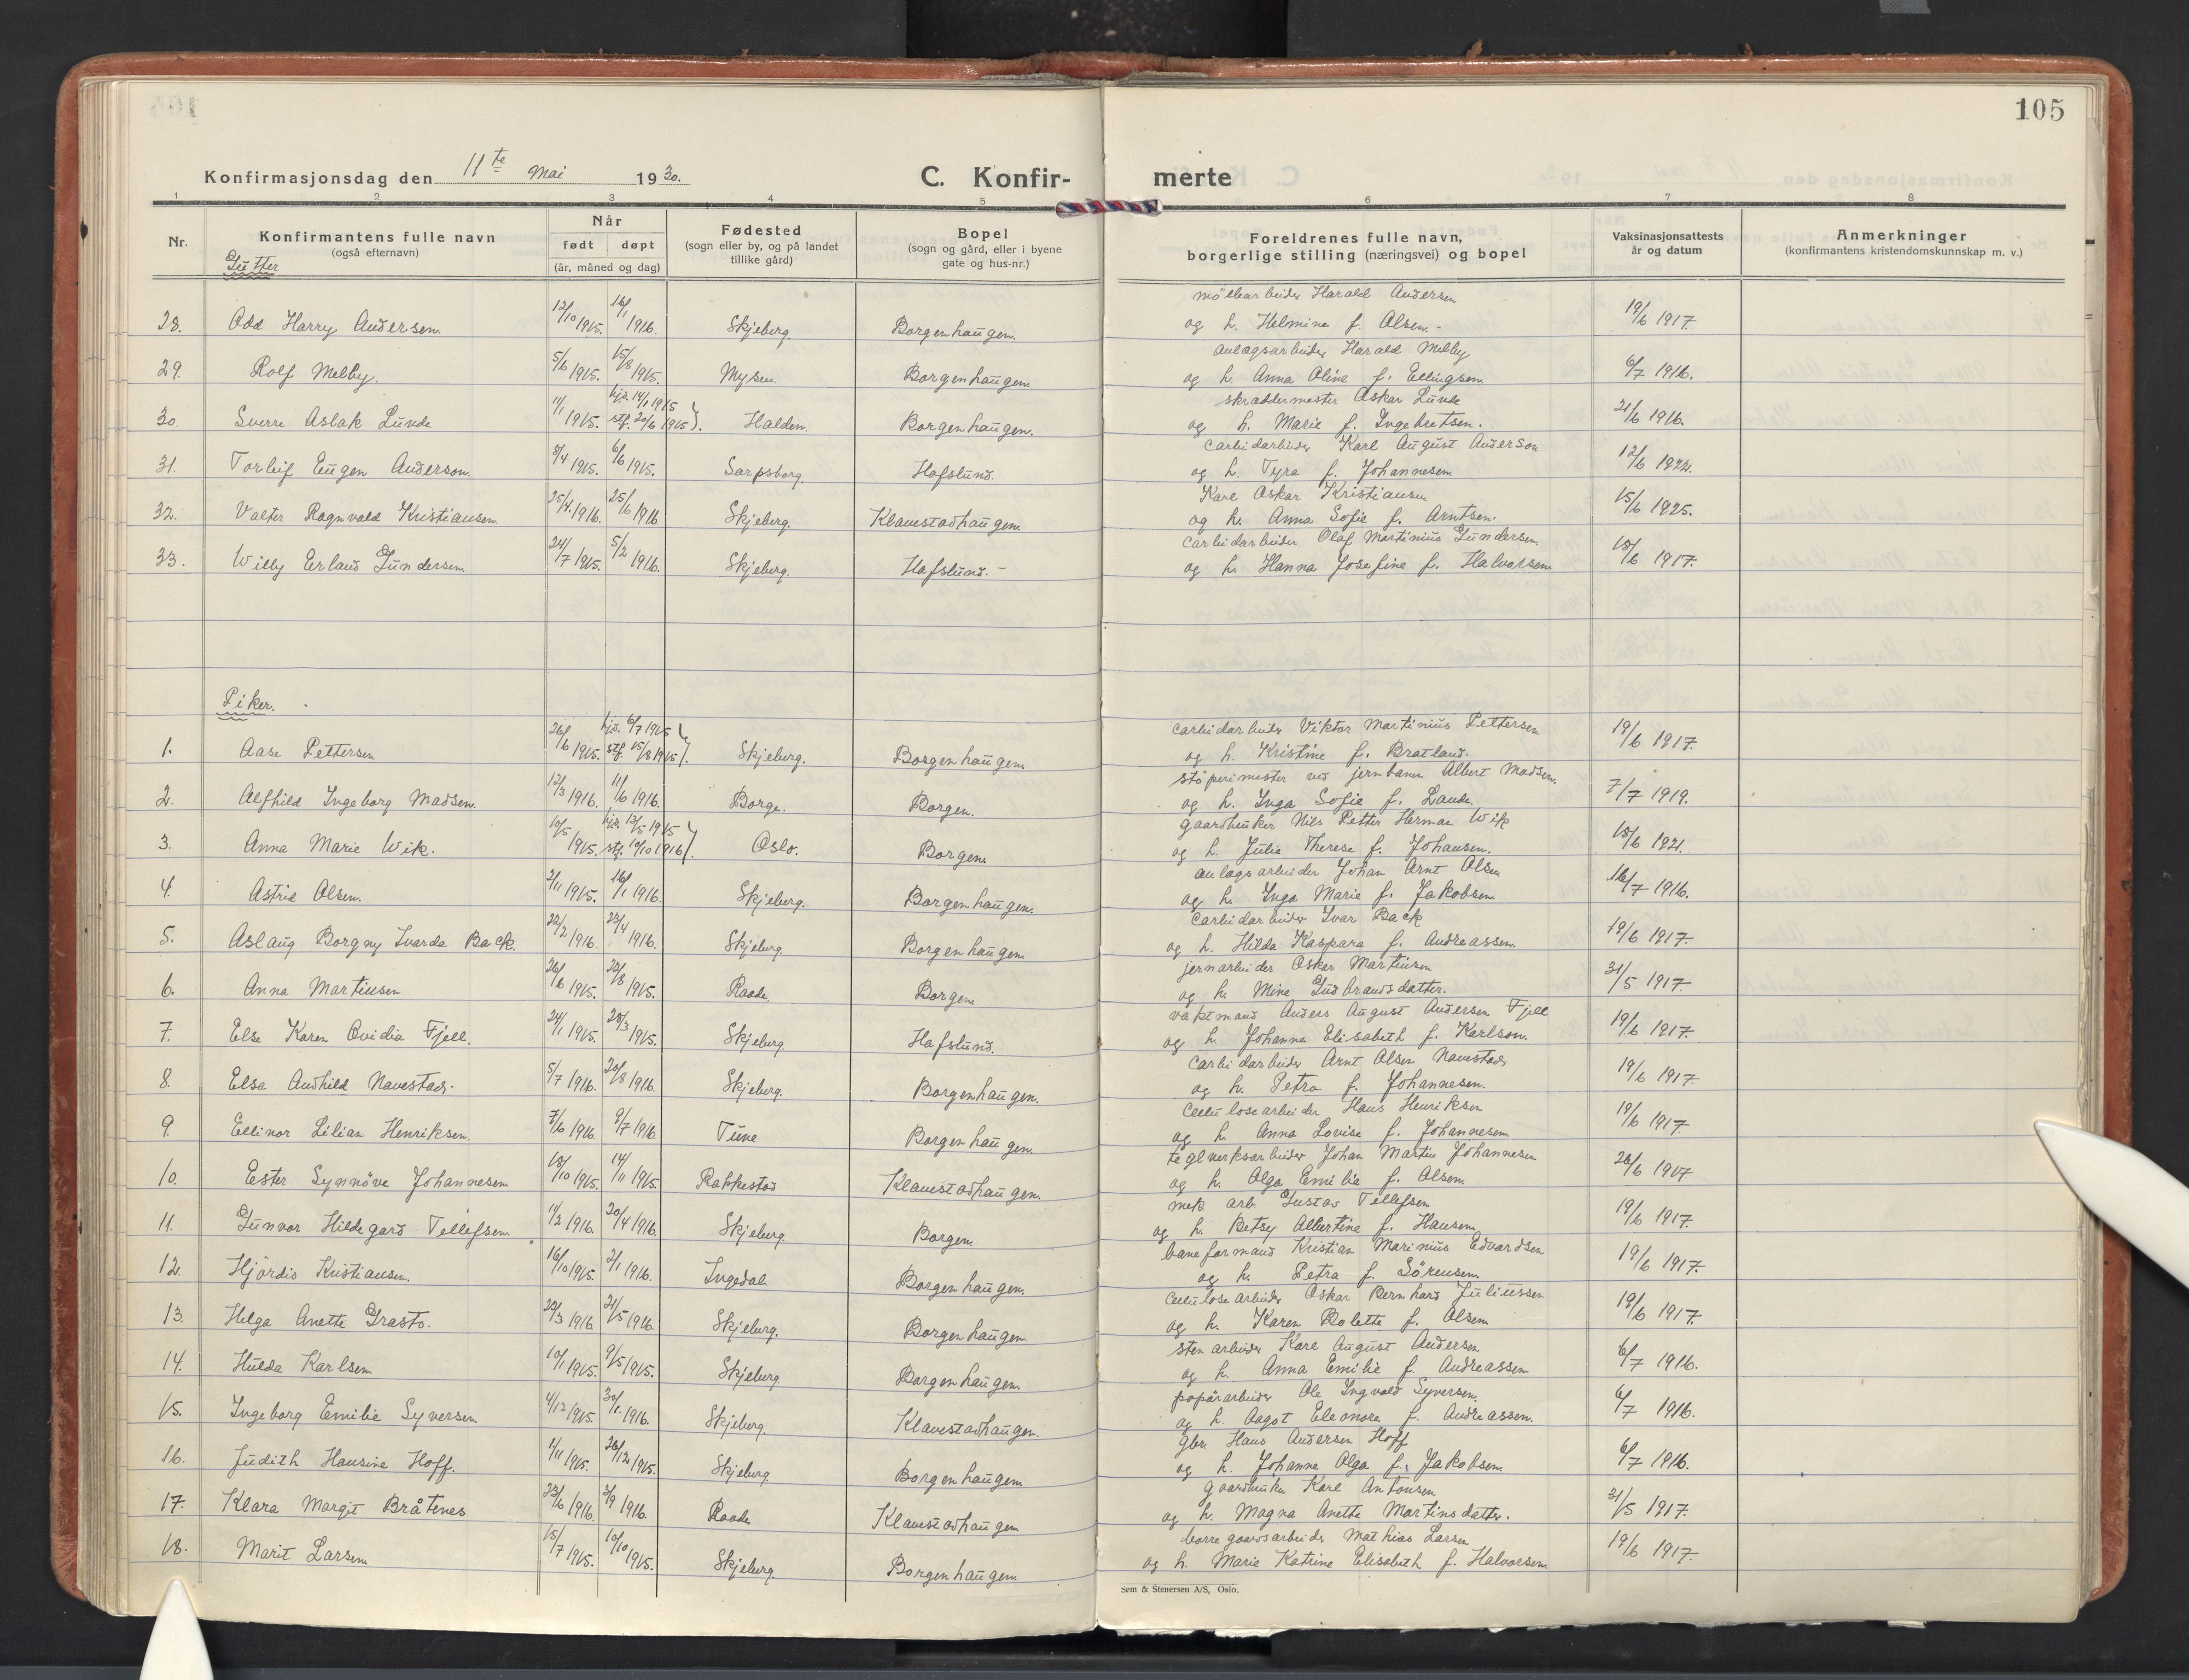 105
Konfirmasjonsdag den 11te Mai 1930.
C. Konfir-
merte
1 2 3 4 5 6 7 8
Nr.
Konfirmantens fulle navn
(også efternavn)
Når
født døpt
(år, måned og dag)
Fødested
(sogn eller by, og på landet
tillike gård)
Bopel
(sogn og gård, eller i byene
gate og hus-nr.)
Foreldrenes fulle navn,
borgerlige stilling (næringsvei) og bopel
Vaksinasjonsattests
år og datum
Anmerkninger
(konfirmantens kristendomskunnskap m. v.)
Gutter
28. Odd Harry Andersen. 12/10 1915. 16/1 1916. Skjeberg. Borgenhaugen. möllearbeider Harald Andersen
og h. Helmine f. Olsen. - 19/6 1917.
29. Rolf Melby. 5/6 1915. 15/8 1915. Mysen. Borgenhaugen. anlægsarbeider Harald Melby
og h. Anna Oline f. Ellingsen. 6/7 1916.
30. Sverre Aslak Lunde 11/1 1915. hjd. 14/1 1915 stf. 20/6 1915). Halden. Borgenhaugen. skræddermester Oskar Lunde
og h. Marie f. Ingebretsen. 21/6 1916.
31. Torleif Eugen Anderson. 8/4 1915. 6/6 1915. Sarpsborg. Hafslund. Carbidarbeider Karl August Anderson
og h. Tyra f. Johannesen 12/6 1922.
32. Valter Ragnvald Kristiansen. 25/4 1916. 25/6 1916 Skjeberg. Klavestadhaugen. Karl Oskar Kristiansen
og h. Anna Sofie f. Arntsen. 15/6 1925.
33. Willy Erland Gundersen. 24/7 1915. 5/2 1916. Skjeberg. Hafslund. - Carbidarbeider Olaf Martinius Gundersen.
og h. Hanna Josefine f. Halvorsen 18/6 1917.
Piker.
1. Aase Pettersen 26/6 1915. hjd. 6/7 1915 stf. 15/8 1915). Skjeberg. Borgenhaugen. Carbidarbeider Viktor Martinius Pettersen
og h. Kristine f. Bratland. 19/6 1917.
2. Alfhild Ingeborg Madsen. 12/3 1916. 11/6 1916. Borge. Borgen. stöperimester ved jernbanen Albert Madsen.
og h. Inga Sofie f. Lande. 7/7 1919.
3. Anna Marie Wik. 10/5 1915. hjd. 13/5 1915 stf. 10/10 1916). Oslo. Borgen. gaardbruker Nils Petter Herman Wik
og h. Julie Therese f. Johansen. 18/6 1921.
4. Astrid Olsen. 2/11 1915. 16/1 1916. Skjeberg. Borgenhaugen. anlægsarbeider Johan Arnt Olsen
og h. Inga Marie f. Jakobsen 16/7 1916.
5. Aslaug Borgny Ivarda Back. 22/2 1916. 23/4 1916. Skjeberg Borgenhaugen. Carbidarbeider Ivar Back
og h. Hilda Kaspara f. Andreassen. 19/6 1917.
6. Anna Martinsen 26/6 1915. 22/8 1915. Raade. Borgen. jernarbeider Oskar Martinsen
og h. Mina Gudbrandsdatter. 31/5 1917.
7. Else Karen Ovidia Fjell. 24/1 1915. 28/3 1915. Skjeberg Hafslund. vaktmand Anders August Andersen Fjell
og h. Johanne Elisabeth f. Karlson. 19/6 1917.
8. Elsa Audhild Navestad. 5/7 1916. 20/8 1916. Skjeberg. Borgenhaugen. Carbidarbeider Arnt Olsen Navestad
og h. Petra f. Johannesen. 19/6 1917.
9. Ellinor Lilian Henriksen. 7/6 1916. 9/7 1916. Tune Borgenhaugen. Cellulosearbeider Hans Henriksen
og h. Anna Lovise f. Johannesen. 19/6 1917
10. Ester Synnöve Johannesen 18/10 1915. 14/11 1915. Rakkestad Klavestadhaugen. teglverksarbeider Johan Martin Johannesen
og h. Olga Emilie f. Olsen. 28/6 1917
11. Gunvor Hildegard Tellefsen. 11/2 1916. 20/4 1916. Skjeberg Borgen. mek arb. Gustav Tellefsen
og h. Betsy Albertine f. Hansen. 19/6 1917.
12. Hjördis Kristiansen. 16/10 1915. 2/1 1916. Ingedal. Borgenhaugen. baneformand Kristian Marinius Edvardsen
og h. Petra f. Sörensen. 19/6 1917.
13. Helga Anette Grasto. 22/3 1916. 21/5 1916. Skjeberg. Borgenhaugen. Cellulosearbeider Oskar Bernhard Juliussen
og h. Karen Bolette f. Olsen. 19/6 1917.
14. Hulda Karlsen. 10/1 1915. 9/5 1915. Skjeberg Borgenhaugen. stenarbeider Karl August Andersen
og h. Anna Emilie f. Andreassen 6/7 1916.
15. Ingeborg Emilie Syversen 4/12 1915. 30/1 1916. Skjeberg Klavestadhaugen. papirarbeider Ole Ingvald Syversen.
og h. Aagot Eleonore f. Andreassen. 6/7 1916.
16. Judith Hansine Hoff. 1/11 1915. 26/12 1915. Skjeberg Borgenhaugen. gbr. Hans Andersen Hoff
og h. Johanne Olga f. Jakobsen. 6/7 1916.
17. Klara Margit Bråtenes 23/6 1916. 3/9 1916. Raade. Klavestadhaugen gaardbruker Karl Antonsen
og h. Magna Anette Martinsdatter. 31/5 1917.
18. Marit Larsen. 15/7 1915. 10/10 1915. Skjeberg. Borgenhaugen. borregaardsarbeider Mathias Larsen
og h. Marie Katrine Elisabeth f. Halvorsen. 19/6 1917.
Sem & Stenersen A/S, Oslo.